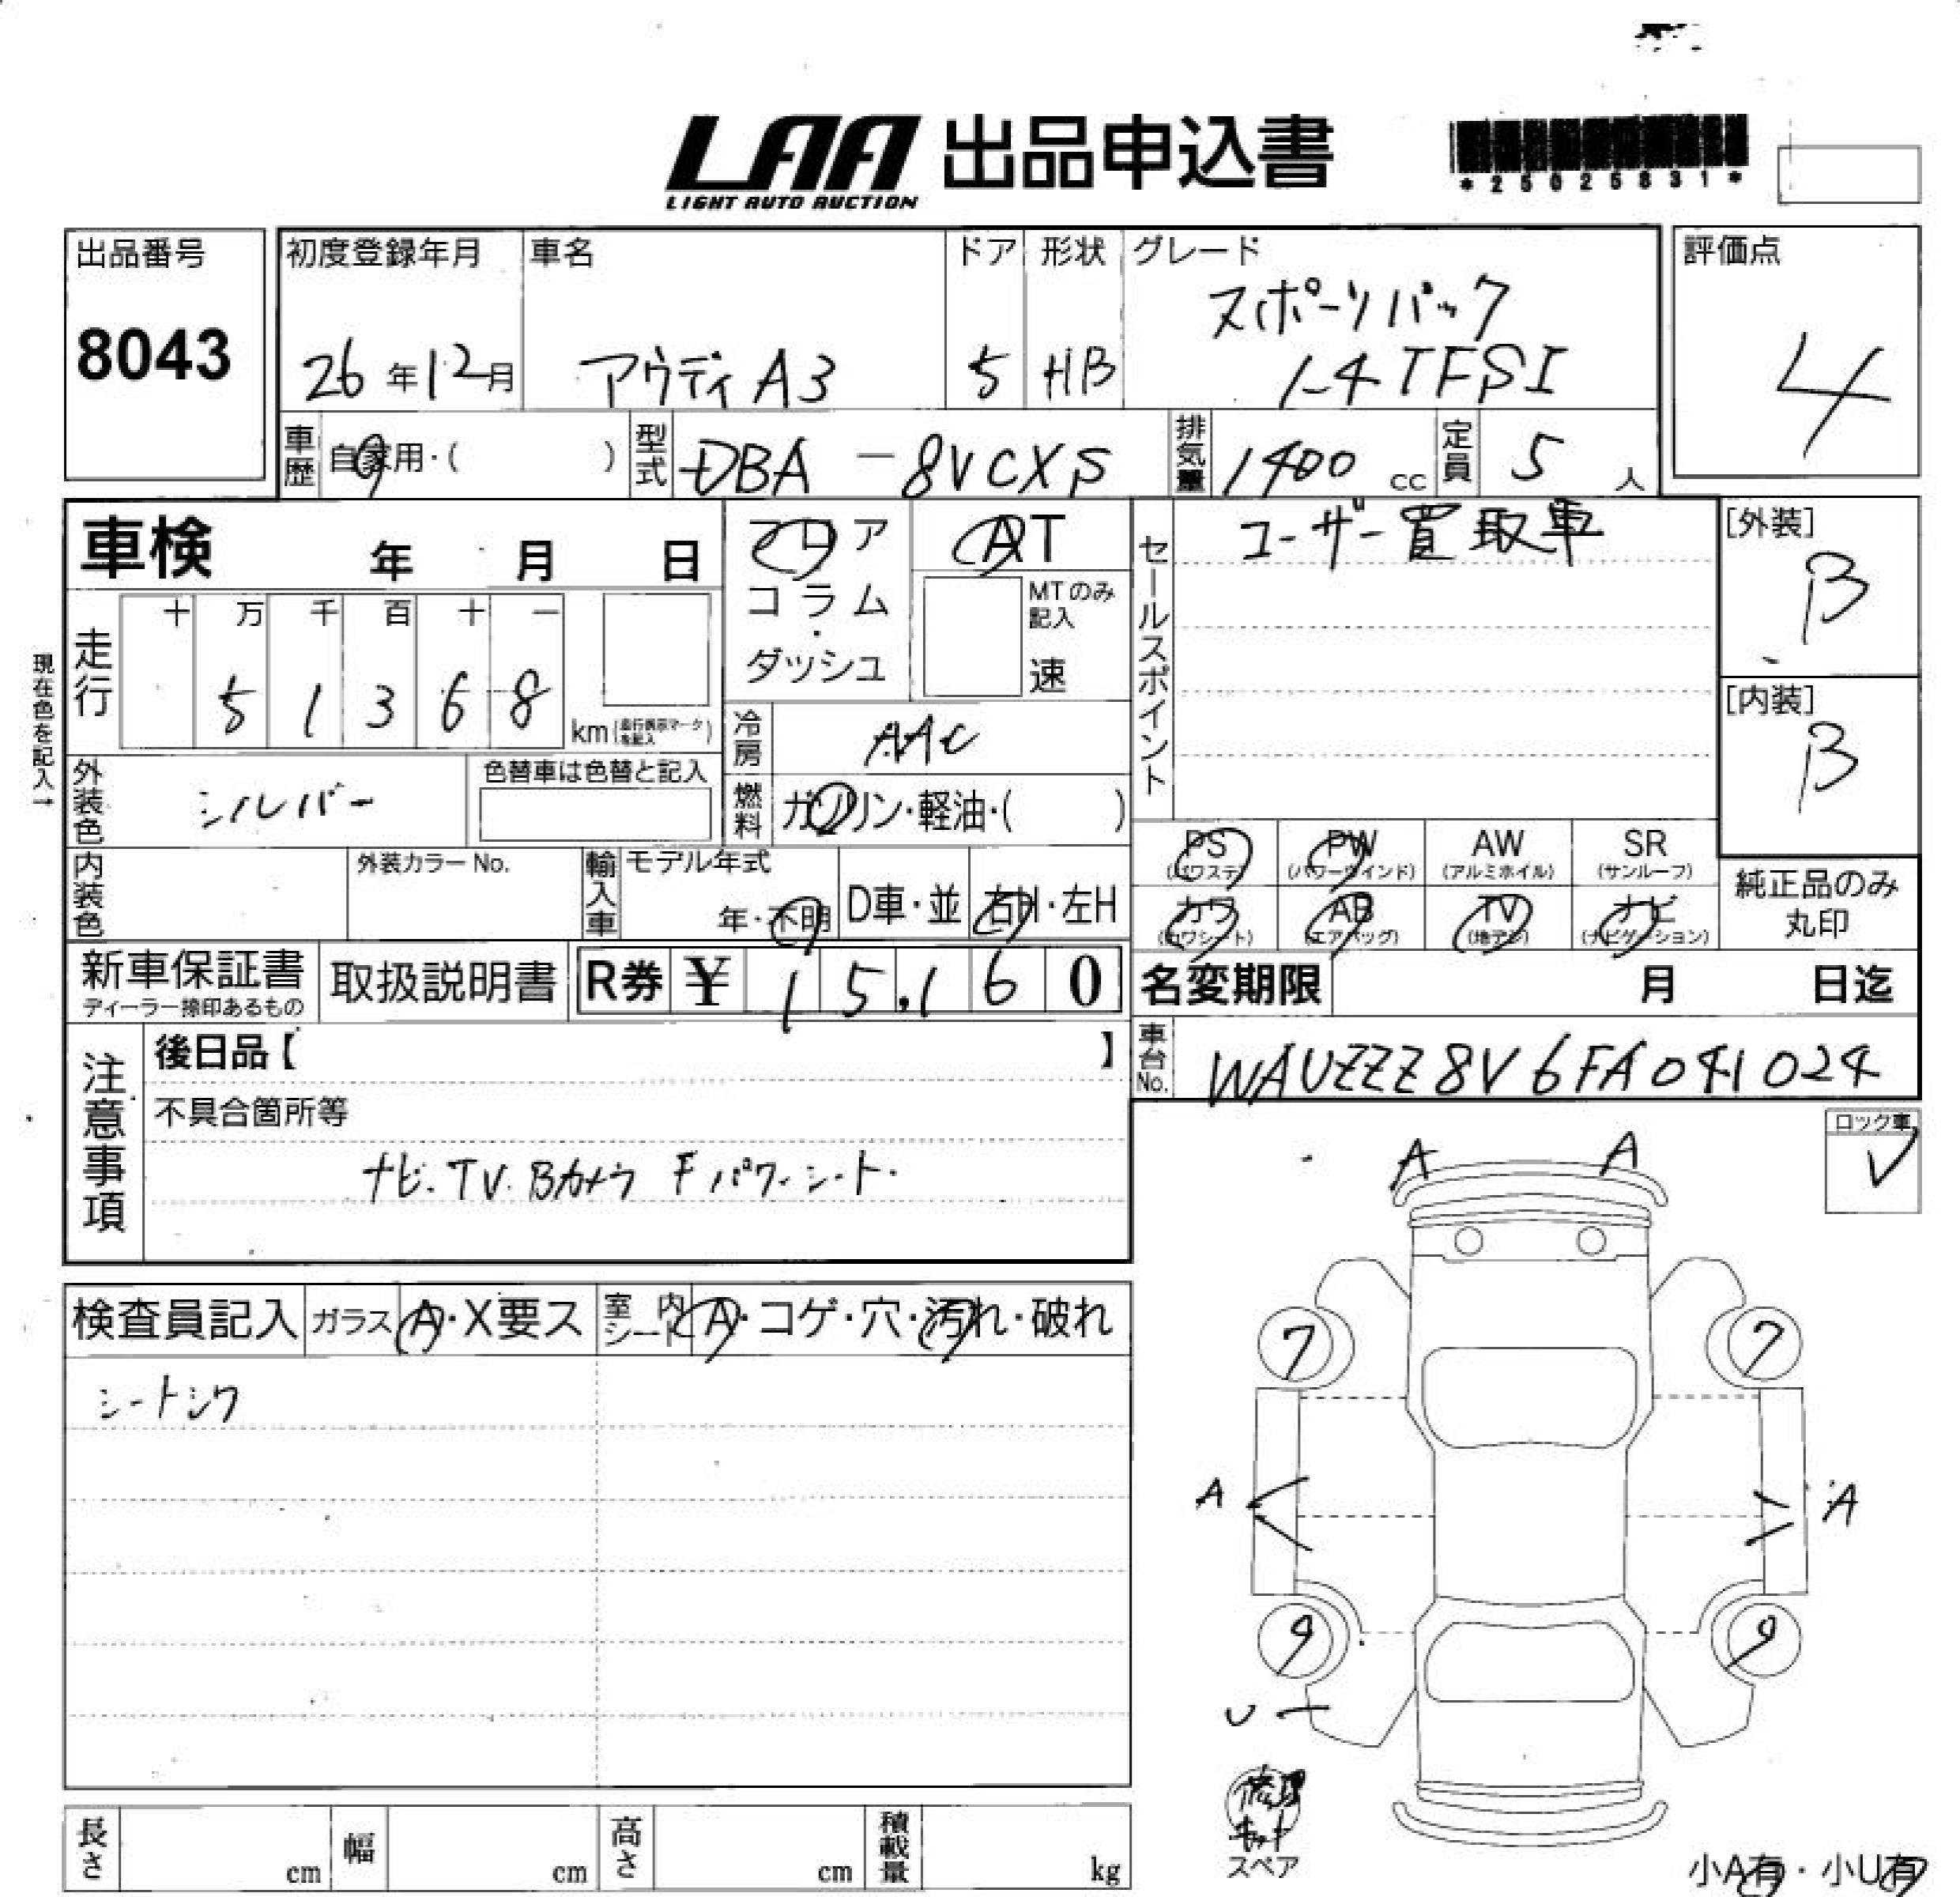 LAA 出品申込書
LIGHT AUTO AUCTION
*25025831*
出品番号
8043
初度登録年月
26年12月
車名
アウディ A3
ドア
5
形状
HB
グレード
スポーツバック
1.4 TFSI
評価点
4
車歴
自家用・( )
型式
DBA-8VCXS
排気量
1400 cc
定員
5 人
車検 年 月 日
フロア
コラム
・
ダッシュ
AT
MTのみ
記入
速
セールスポイント
ユーザー買取車
[外装]
B
[内装]
B
現在色を記入→
走行
十 万 千 百 十 一
5 1 3 6 8
km(走行表示マークを記入)
冷房
AAC
燃料
ガソリン・軽油・( )
外装色
シルバー
色替車は色替と記入
内装色
外装カラー No.
輸入車
モデル年式
年・不明
D車・並
右H・左H
PS
(パワステ)
PW
(パワーウインド)
AW
(アルミホイル)
SR
(サンルーフ)
カワ
(カワシート)
AB
(エアバッグ)
TV
(地デジ)
ナビ
(ナビゲーション)
純正品のみ
丸印
新車保証書
ディーラー捺印あるもの
取扱説明書
R券 ¥ 15,160
名変期限 月 日迄
車台No.
WAUZZZ8V6FA041024
注意事項
後日品【 】
不具合箇所等
ナビ.TV.Bカメラ Fパワーシート.
ロック車
✓
A A
7 7
A A
9 9
U
修理
キット
スペア
小A有・小U有
検査員記入
ガラス
A・X要ス
室内
シート
A・コゲ・穴・汚れ・破れ
シートシワ
長さ cm
幅 cm
高さ cm
積載量 kg